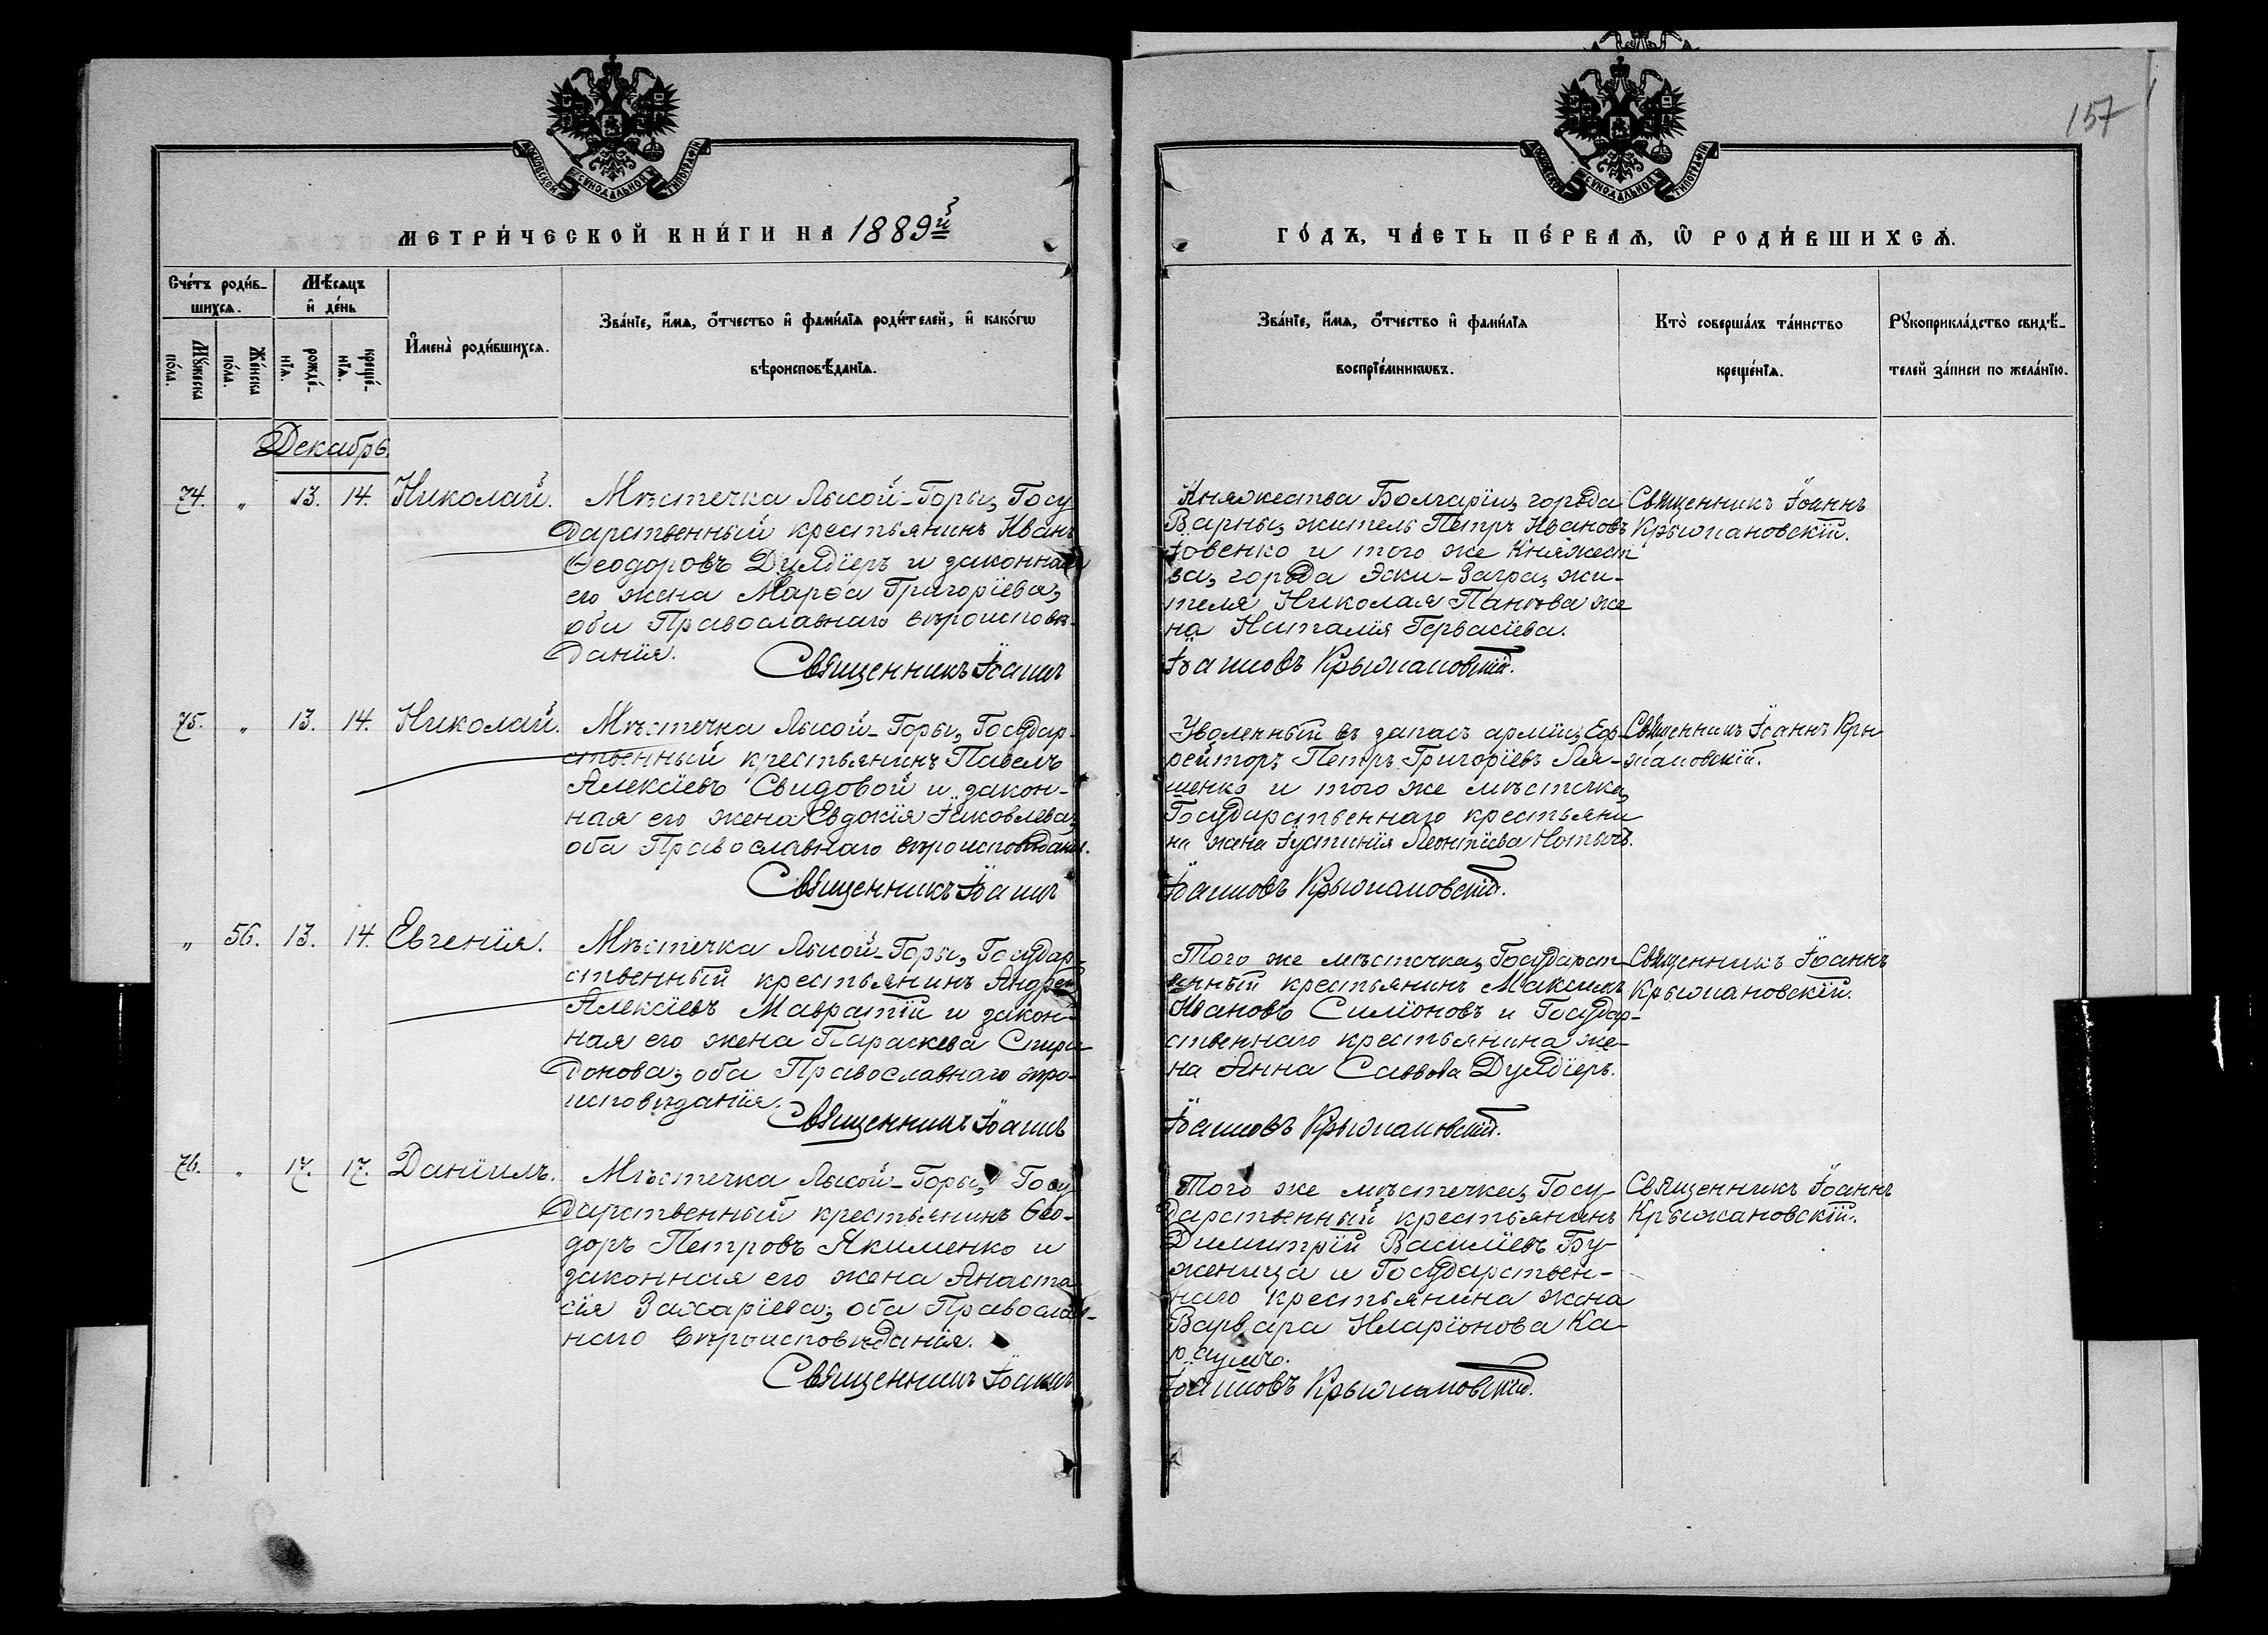 157
МОСКОВСКОЙ СѴНОДАЛЬНОЙ ТИПОГРАФІИ
МОСКОВСКОЙ СѴНОДАЛЬНОЙ ТИПОГРАФІИ
МЕТРИ́ЧЕСКОЙ КНИ́ГИ НА 1889й
ГО́ДЪ, ЧА́СТЬ ПЕ́РВАѦ, Ѡ РОДИ́ВШИХСѦ.
Сче́тъ роди́в-
шихсѧ.
Мѣ́сяцъ
и де́нь
Мꙋ́жеска по́ла.
Же́нска по́ла.
рожде́-нїѧ.
креще́-нїѧ.
Имена̀ роди́вшихсѧ.
Зва́нїе, и́мѧ, ѻ҆́тчество и҆ фами́лїѧ роди́телей, и҆ како́гѡ
вѣроисповѣ́данїѧ.
Зва́нїе, и́мѧ, ѻ҆́тчество и҆ фами́лїѧ
воспрїе́мникѡвъ.
Кто̀ соверша́лъ та́инство
креще́нїѧ.
Рꙋкоприкла́дство свидѣ́-
телей за́писи по жела́нїю.
Декабрь.
74. " 13. 14. Николай.
Мѣстечка Лысой-Горы, Госу
дарственный крестьянинъ Иванъ
Ѳеодоровъ Дулдіеръ и законная
его жена Марѳа Григоріева,
оба Православнаго вѣроисповѣ-
данія.
Священникъ Іоаннъ
Княжества Болгаріи, города
Варны, житель Петръ Ивановъ
Іовенко и того же Княжест
ва, города Эски-Загра, жи-
теля Николая Панѣва же
на Наталія Гервасіева.
Іоанновъ Крыжановскій.
Священникъ Іоаннъ
Крыжановскій.
75. " 13. 14. Николай.
Мѣстечка Лысой-Горы, Государ-
ственный крестьянинъ Павелъ
Алексіевъ Свидовой и закон-
ная его жена Евдокія Іаковлева,
оба Православнаго вѣроисповѣданія.
Священникъ Іоаннъ
Уволенный въ запасъ арміи, Еф-
рейторъ Петръ Григоріевъ Ля-
шенко и того же мѣстечка,
Государственнаго крестьяни
на жена Іустинія Леонтіева Нотычъ.
Іоанновъ Крыжановскій.
Священникъ Іоаннъ Кры
жановскій.
" 56. 13. 14. Евгенія.
Мѣстечка Лысой-Горы, Государ-
ственный крестьянинъ Андрей
Алексіевъ Мавратій и закон-
ная его жена Параскева Спири
донова, оба Православнаго вѣро-
исповѣданія.
Священникъ Іоаннъ
Того же мѣстечка, Государст-
венный крестьянинъ Максимъ
Ивановъ Симіоновъ и Государ-
ственнаго крестьянина же-
на Анна Саввова Дулдіеръ.
Іоанновъ Крыжановскій.
Священникъ Іоаннъ
Крыжановскій.
76. " 17. 17. Даніилъ.
Мѣстечка Лысой-Горы, Госу
дарственный крестьянинъ Ѳео-
доръ Петровъ Якименко и
законная его жена Анаста
сія Захаріева, оба Православ-
наго вѣроисповѣданія.
Священникъ Іоаннъ
Того же мѣстечка, Госу-
дарственный крестьянинъ
Димитрій Василіевъ Бу-
женица и Государствен-
наго крестьянина жена
Варвара Иларіонова Ка-
раулъ.
Іоанновъ Крыжановскій.
Священникъ Іоаннъ
Крыжановскій.